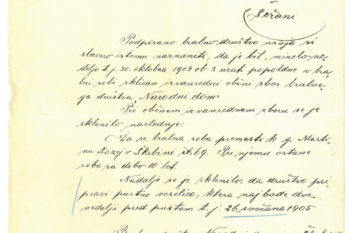 Ležani
Podpisano bralno društvo usoja si
slavno istemu naznaniti, da je bil minulo ne-
deljo t. j. 30. oktobra 1904 ob 3 urah popoldne v bra-
lni sobi sklican izvanredni občni zbor bralne-
ga društva "Narodni dom"
Pri občnem izvanrednem zboru se je
sklenilo naslednje:
Da se bralna soba premesti k g. Marti-
nu v Škednji št. 69. Pri njemu ostane
soba za dobo 10 let.
Nadalje se je sklenilo da društvo pri-
pravi pustno veselico, katera naj bode dve
nedelji pred pustom t. j. 26 svečana 1905